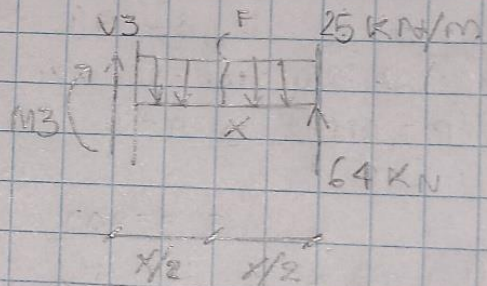 V3 F 25 KN/m
M3 X
64 KN
X/2 X/2